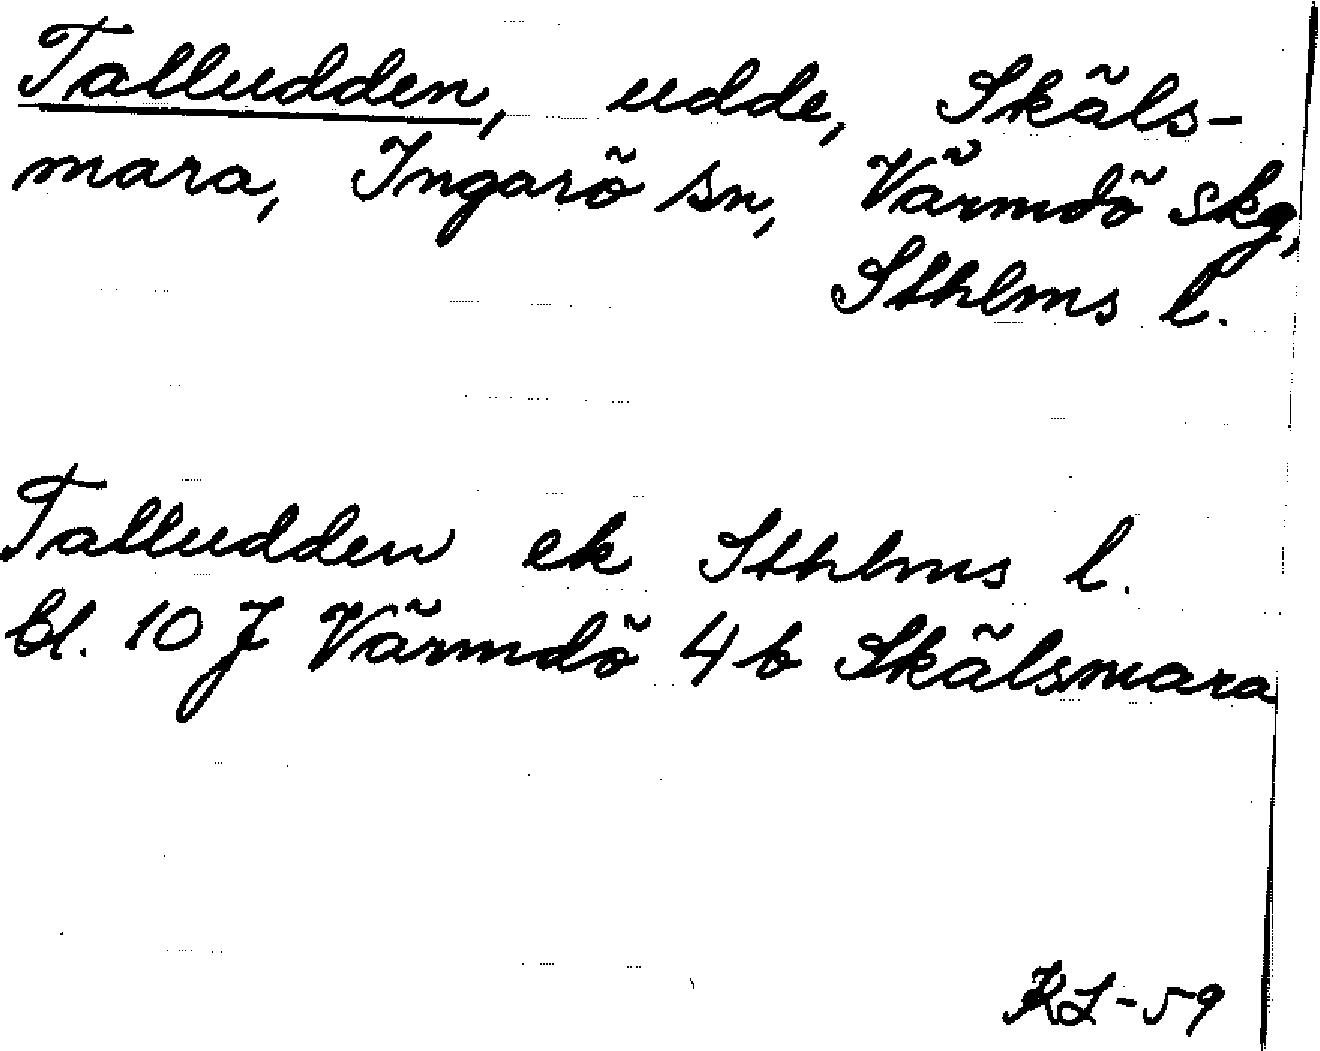 Talludden, udde, Skäls-
mara, Ingarö sn, Värmdö skg,
Sthlms l.
Talludden ek Sthlms l.
bl. 10 J Värmdö 4 b Skälsmara
KL-59